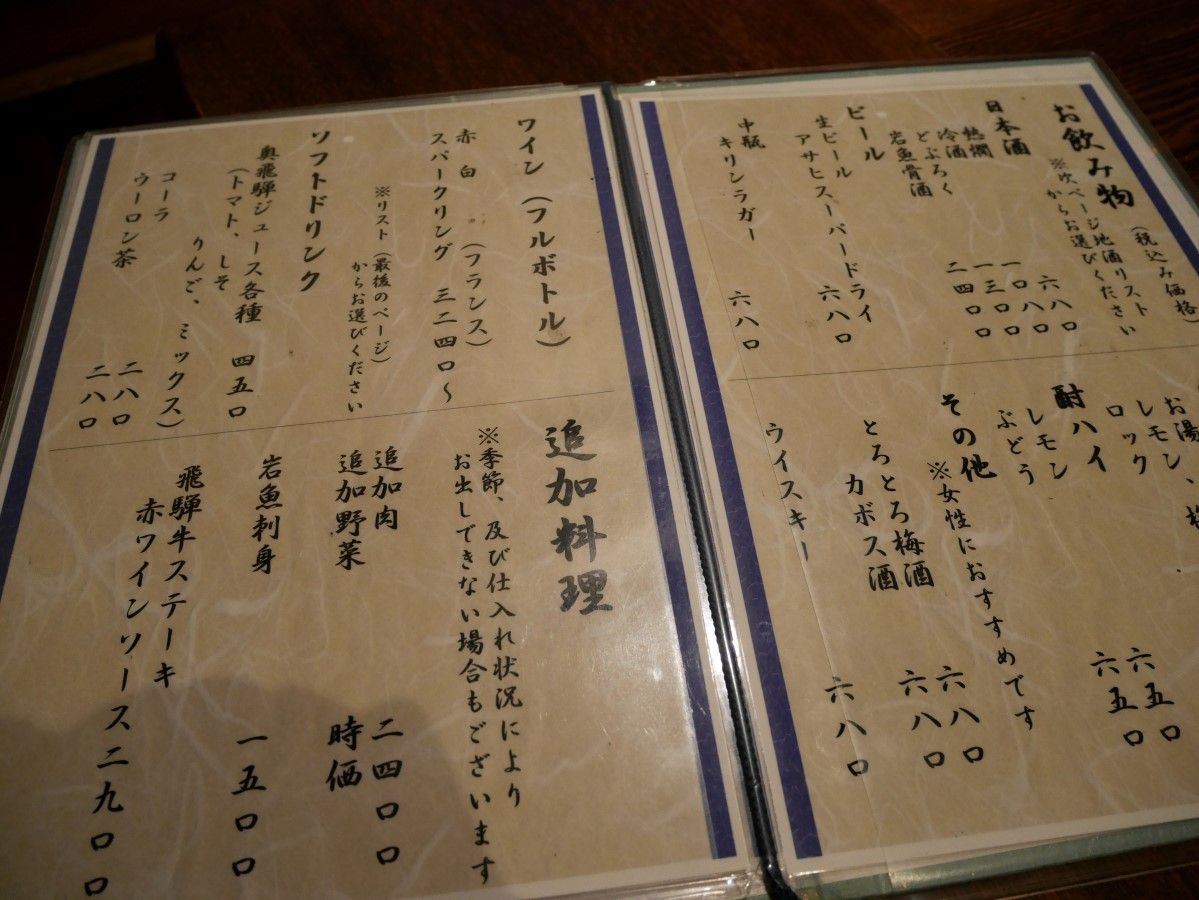 お飲み物 (税込み価格)
※次ページ地酒リスト
からお選びください
日本酒
熱燗 六八〇
冷酒 一〇八〇
どぶろく 一三〇〇
岩魚骨酒 二四〇〇
ビール
生ビール
アサヒスーパードライ 六八〇
中瓶
キリンラガー 六八〇
お湯、
レモン、
ロック
酎ハイ
レモン 六五〇
ぶどう 六五〇
その他 ※女性におすすめです
とろとろ梅酒 六八〇
とろとろカボス酒 六八〇
ウイスキー 六八〇
ワイン(フルボトル)
赤 白 。(フランス)
スパークリング 三二四〇〜
※リスト(最後のページ)
からお選びください
ソフトドリンク
奥飛騨ジュース各種 四五〇
(トマト、しそ
りんご、ミックス)
コーラ 二八〇
ウーロン茶 二八〇
追加料理
※季節、及び仕入れ状況により
お出しできない場合もございます
追加肉 二四〇〇
追加野菜 時価
岩魚刺身 一五〇〇
飛騨牛ステーキ
赤ワインソース二九〇〇